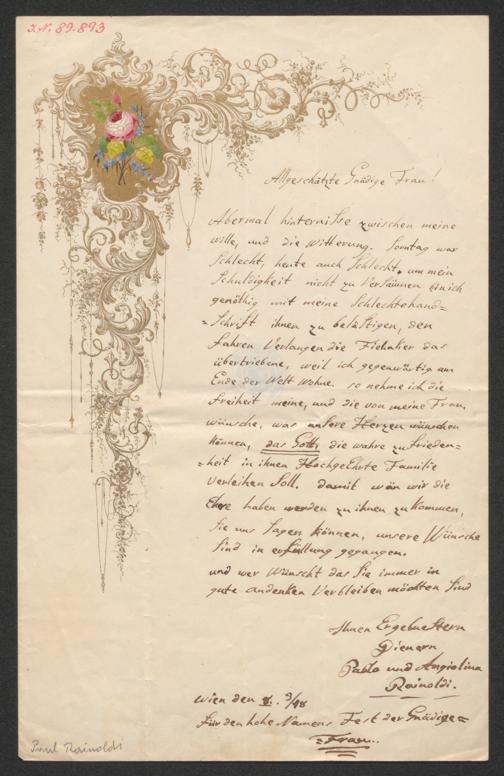 J.N. 89.893
Allgeschätzte Gnädige Frau!
Abermal hinternisse zwischen meine
wille, und die Witterung. Sonntag war
Schlecht, heute auch Schlecht, um mein
Schuldigkeit nicht zu Versäumen bin ich
genöthig mit meine Schlechtehand=
=Schrift ihnen zu beläStigen, den
fahren Verlangen die Fiehaker das
übertriebene, weil ich gegenwärtig am
Ende der Welt Wohne. so nehme ich die
freiheit meine, und die von meine Frau
wünsche, was unsere Herzen wünschen
können, das Gott, die wahre zufrieden=
=heit in ihnen HochgeEhrte Familie
Verleihen Soll. damit wän wir die
Ehre haben werden zu ihnen zu Kommen,
Sie uns Sagen können, unsere Wünsche
Sind in erfüllung gegangen.
und wer Wünscht das Sie immer in
gute andenken Verbleiben möchten Sind
Ihnen ErgebneStern
Dienern
Pablo und Angiolina
Rainoldi.
Wien den 8. 3/48
Für den hohe Namens Fest der Gnädige=
=Frau.
Paul Rainoldi